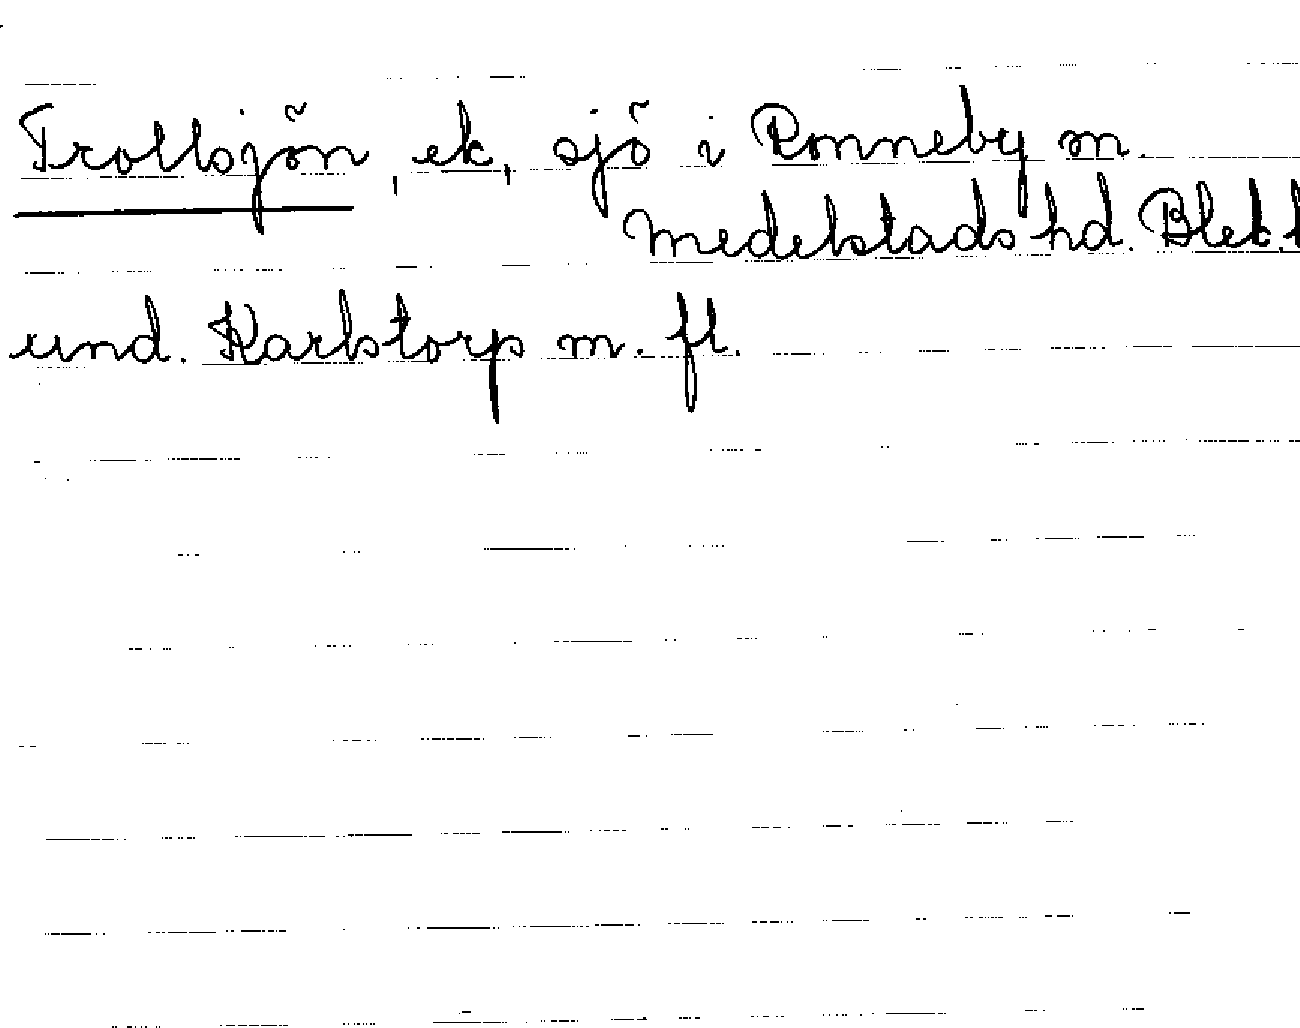 Trollsjön, ek, sjö i Ronneby sn.
Medelstads hd. Blek.
und. Karlstorp m. fl.